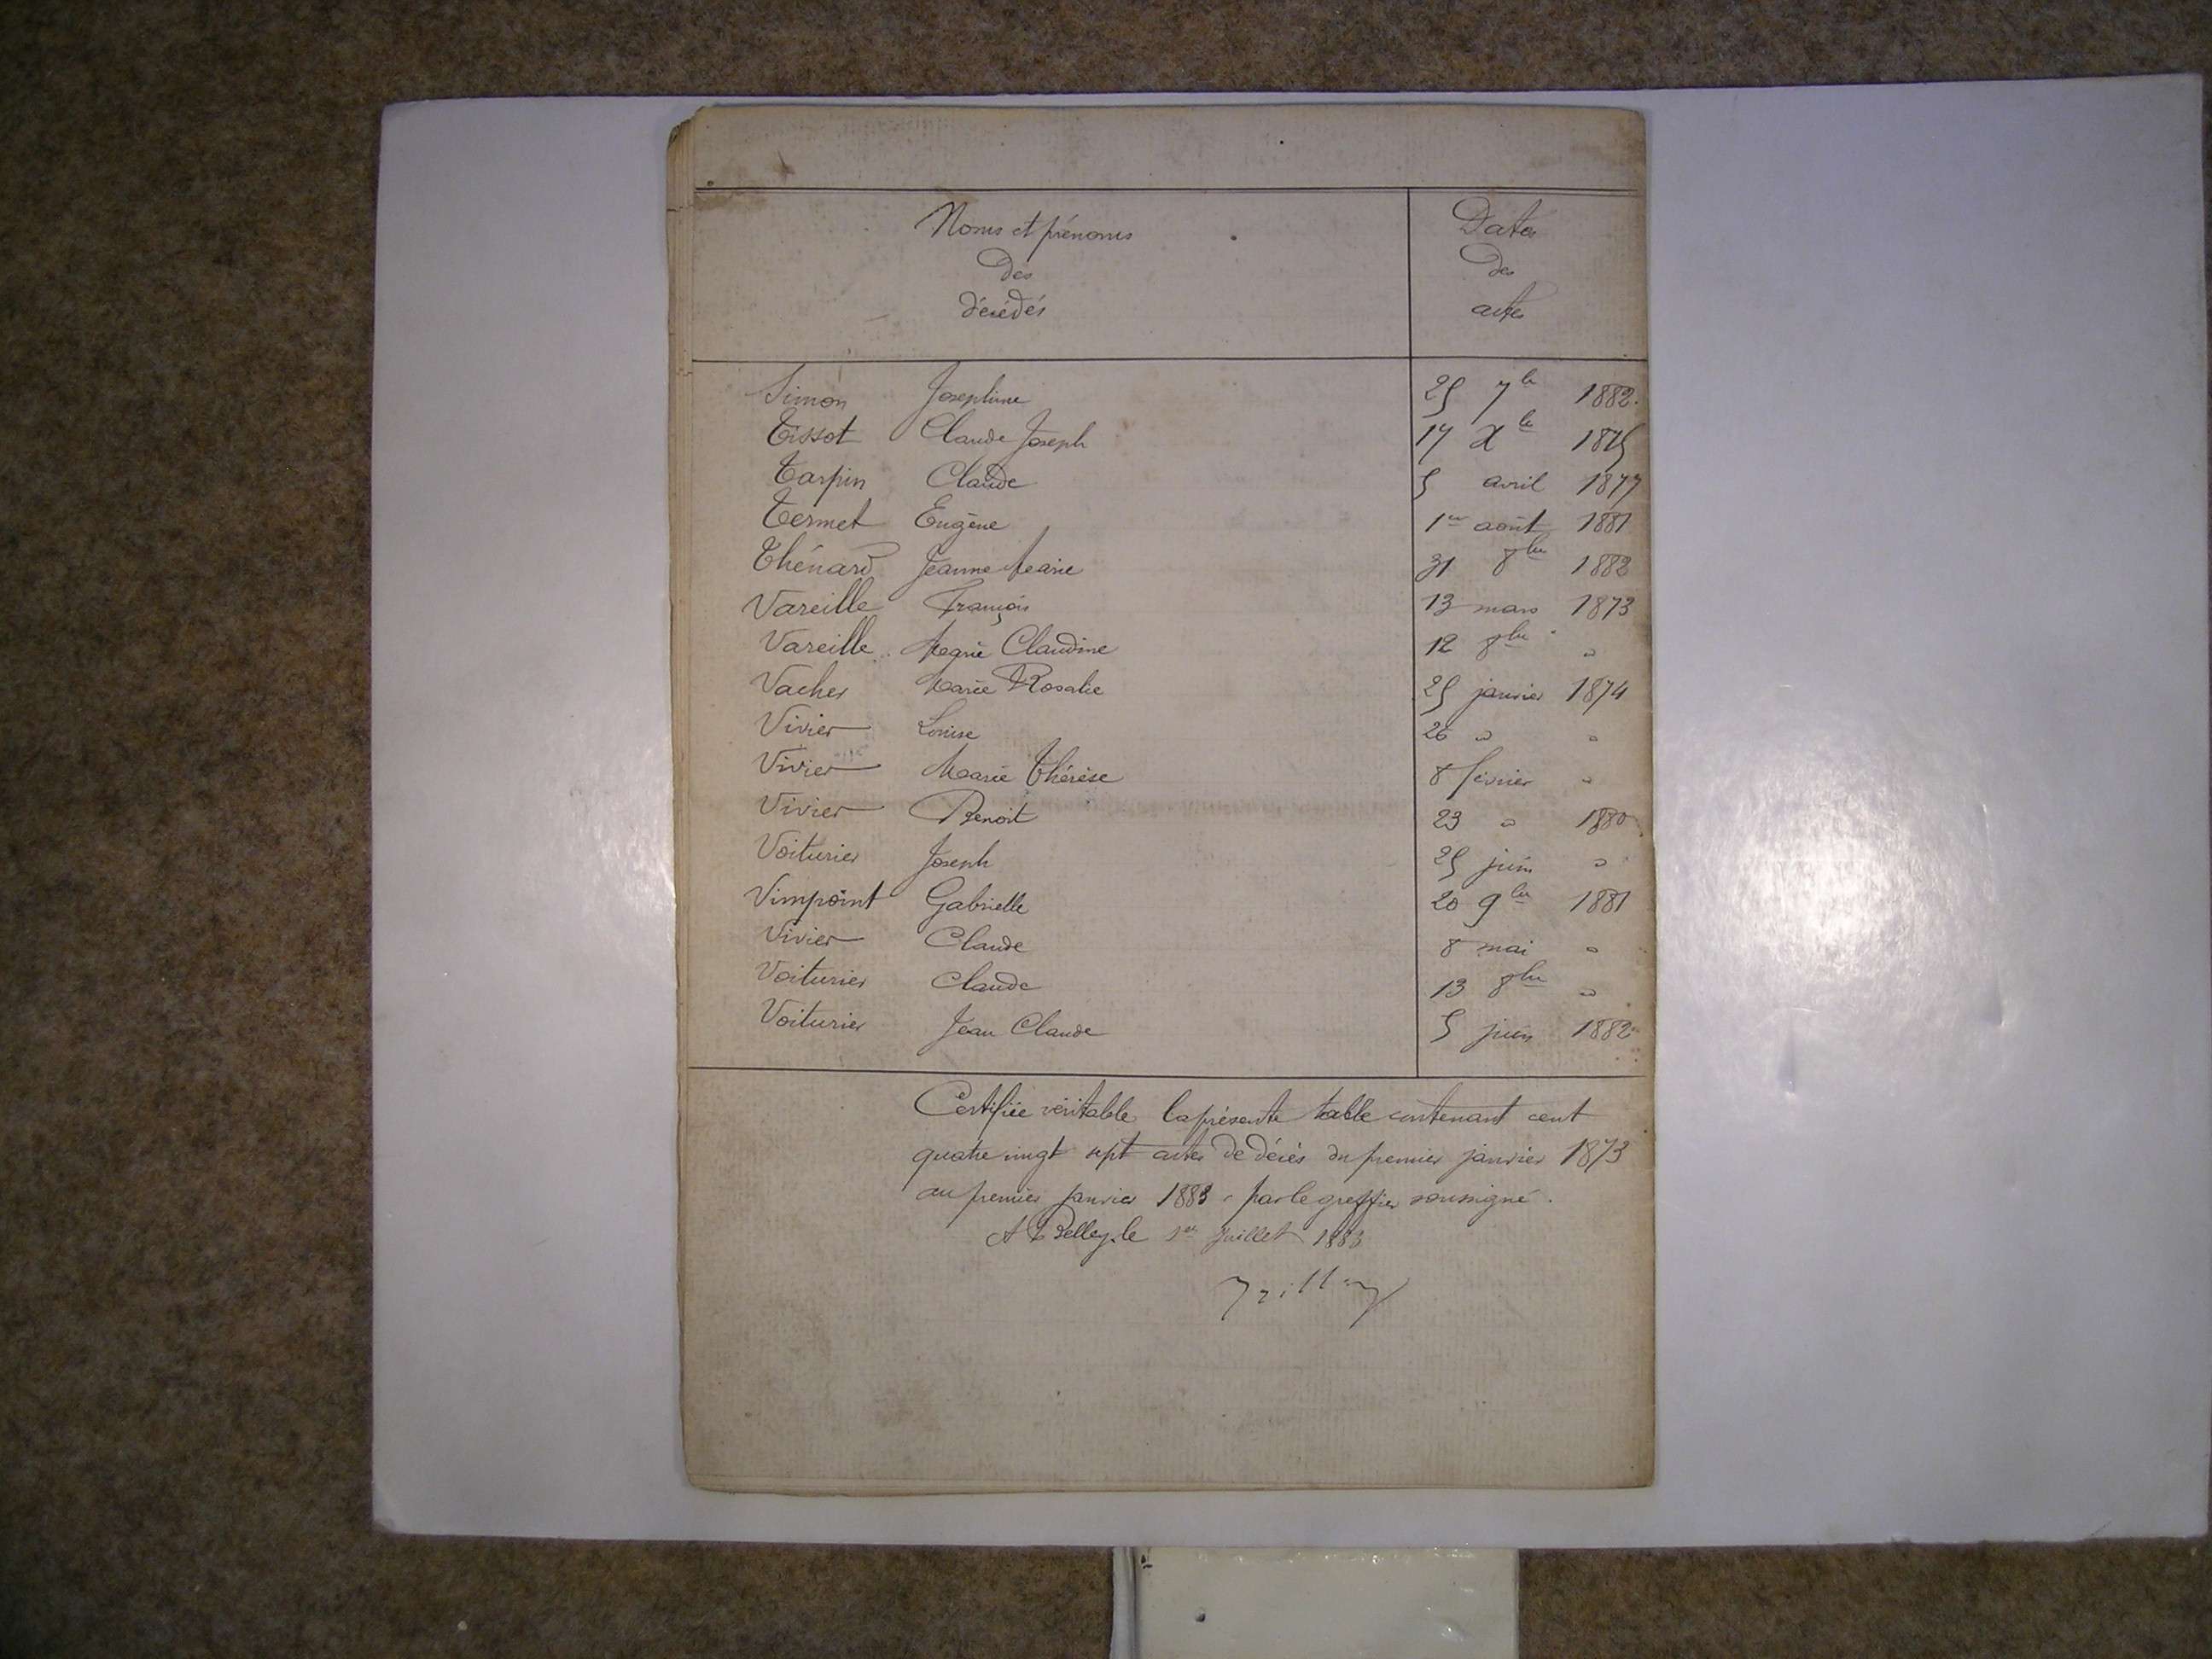 Noms et prénoms
des
décédés
Dates
des
actes
Simon Josephine 25 7bre 1882.
Tissot Claude Joseph 17 Xbre 1875
Tarpin Claude 5 avril 1877
Termet Eugène 1er août 1881
Thénard Jeanne Marie 31 8bre 1882
Vareille François 13 mars 1873
Vareille Marie Claudine 12 8bre "
Vacher Marie Rosalie 25 janvier 1874
Vivier Louise 26 " "
Vivier Marie Thérèse 8 février "
Vivier Benoit 23 " 1880
Voiturier Joseph 25 juin "
Vimpoint Gabrielle 20 9bre 1881
Vivier Claude 8 mai "
Voiturier Claude 13 8bre "
Voiturier Jean Claude 5 juin 1882
Certifiée véritable la présente table contenant cent
quatre vingt sept actes de décès du premier janvier 1873
au premier janvier 1883 par le greffier soussigné.
A Belley, le 1er juillet 1883